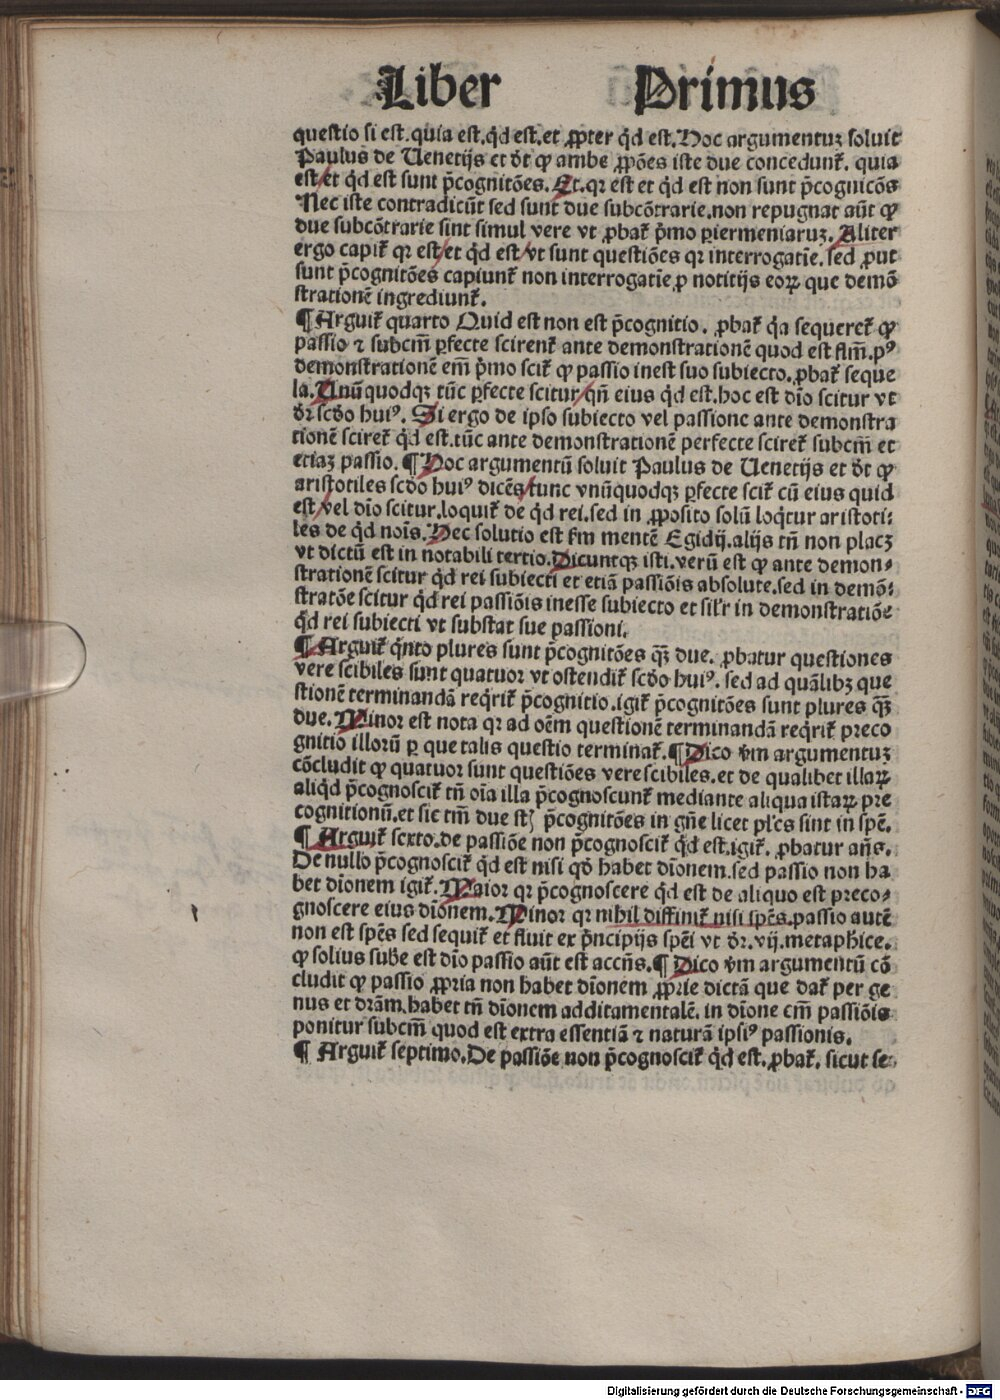 Liber Primus
questio si est. quia est. qͥd est. et ꝓpter qͥd est. Hoc argumentuꝫ soluit
Paulus de Uenetijs et dͦt ꝙ ambe ꝓpōes iste due concedunt᷑. quia
est/et qͥd est sunt p̄cognitōes. Et. qꝛ est et qͥd est non sunt p̄cognicōs
Nec iste contradicūt sed sunt due subcōtrarie. non repugnat aūt ꝙ
due subcōtrarie sint simul vere vt ꝓbat᷑ pͥmo ꝑiermeniaruꝫ. Aliter
ergo capit᷑ qꝛ est/et qͥd est/vt sunt questiōes qꝛ interrogatīe. sed ꝓut
sunt p̄cognitōes capiunt᷑ non interrogatīe ꝑ notitijs eoꝝ que demō
strationē ingrediunt᷑.
¶ Arguit᷑ quarto Quid est non est p̄cognitio. ꝓbat᷑ qͥa sequeret᷑ ꝙ
passio ⁊ subcm̄ ꝑfecte scirent᷑ ante demonstrationē quod est flm̄. pꝰ
demonstrationē em̄ pͥmo scit᷑ ꝙ passio inest suo subiecto. ꝓbat᷑ seque
la. Unūquodqꝫ tūc ꝑfecte scitur/qn̄ eius qͥd est. hoc est dīo scitur vt
dr̄ scdo huiꝰ. Si ergo de ipso subiecto vel passione ante demonstra
tionē sciret᷑ qͥd est. tūc ante demonstrationē perfecte sciret᷑ subcm̄ et
etiaꝫ passio. ¶ Hoc argumentū soluit Paulus de Uenetijs et dͦt ꝙ
aristotiles scdo huiꝰ dicēs/tunc vnūquodqꝫ ꝑfecte scit᷑ cū eius quid
est/vel dīo scitur. loquit᷑ de qͥd rei. sed in ꝓposito solū loqͥtur aristoti⸗
les de qͥd noīs. Hec solutio est fm mentē Egidij. alijs tn̄ non placꝫ
vt dictū est in notabili tertio. Dicuntqꝫ isti. verū est ꝙ ante demon⸗
strationē scitur qͥd rei subiecti et etiā passiōis absolute. sed in demō⸗
stratōe scitur qͥd rei passiōis inesse subiecto et sil'r in demonstratiōe
qͥd rei subiecti vt substat sue passioni.
¶ Arguit᷑ qͥnto plures sunt p̄cognitōes qꝫ̄ due. ꝓbatur questiones
vere scibiles sunt quatuor vt ostendit᷑ scdo huiꝰ. sed ad quālibꝫ que
stionē terminandā reqͥrit᷑ p̄cognitio. igit᷑ p̄cognitōes sunt plures qꝫ̄
due. Minor est nota qꝛ ad oēm questionē terminandā reqͥrit᷑ preco
gnitio illorū ꝑ que talis questio terminat᷑. ¶ Dico ꝟm argumentuꝫ
cōcludit ꝙ quatuor sunt questiōes vere scibiles. et de qualibet illaꝝ
aliqͥd p̄cognoscit᷑ tn̄ oīa illa p̄cognoscunt᷑ mediante aliqua istaꝝ pre
cognitionū. et sic tm̄ due stꝫ p̄cognitōes in gn̄e licet pl'es sint in spē.
¶ Arguit᷑ sexto. de passiōe non p̄cognoscit᷑ qͥd est. igit᷑. ꝓbatur an̄s.
De nullo p̄cognoscit᷑ qͥd est nisi qd̄ habet dīonem. sed passio non ha
bet dīonem igit᷑. Maior qꝛ p̄cognoscere qͥd est de aliquo est preco⸗
gnoscere eius dīonem. Minor qꝛ nihil diffinit᷑ nisi spēs. passio autē
non est spēs sed sequit᷑ et fluit ex pͥncipijs spēi vt dr̄. vij. metaph̄ice.
ꝙ solius sub̄e est dīo passio aūt est accn̄s. ¶ Dico ꝟm argumentū cō
cludit ꝙ passio ꝓpria non habet dīonem ꝓprie dictā que dat᷑ per ge
nus et dr̄am. habet tn̄ dīonem additamentalē. in dīone em̄ passiōis
ponitur subcm̄ quod est extra essentiā ⁊ naturā ipsiꝰ passionis.
¶ Arguit᷑ septimo. De passiōe non p̄cognoscit᷑ qͥd est. ꝓbat᷑. sicut se⸗
Digitalisierung gefördert durch die Deutsche Forschungsgemeinschaft - DFG